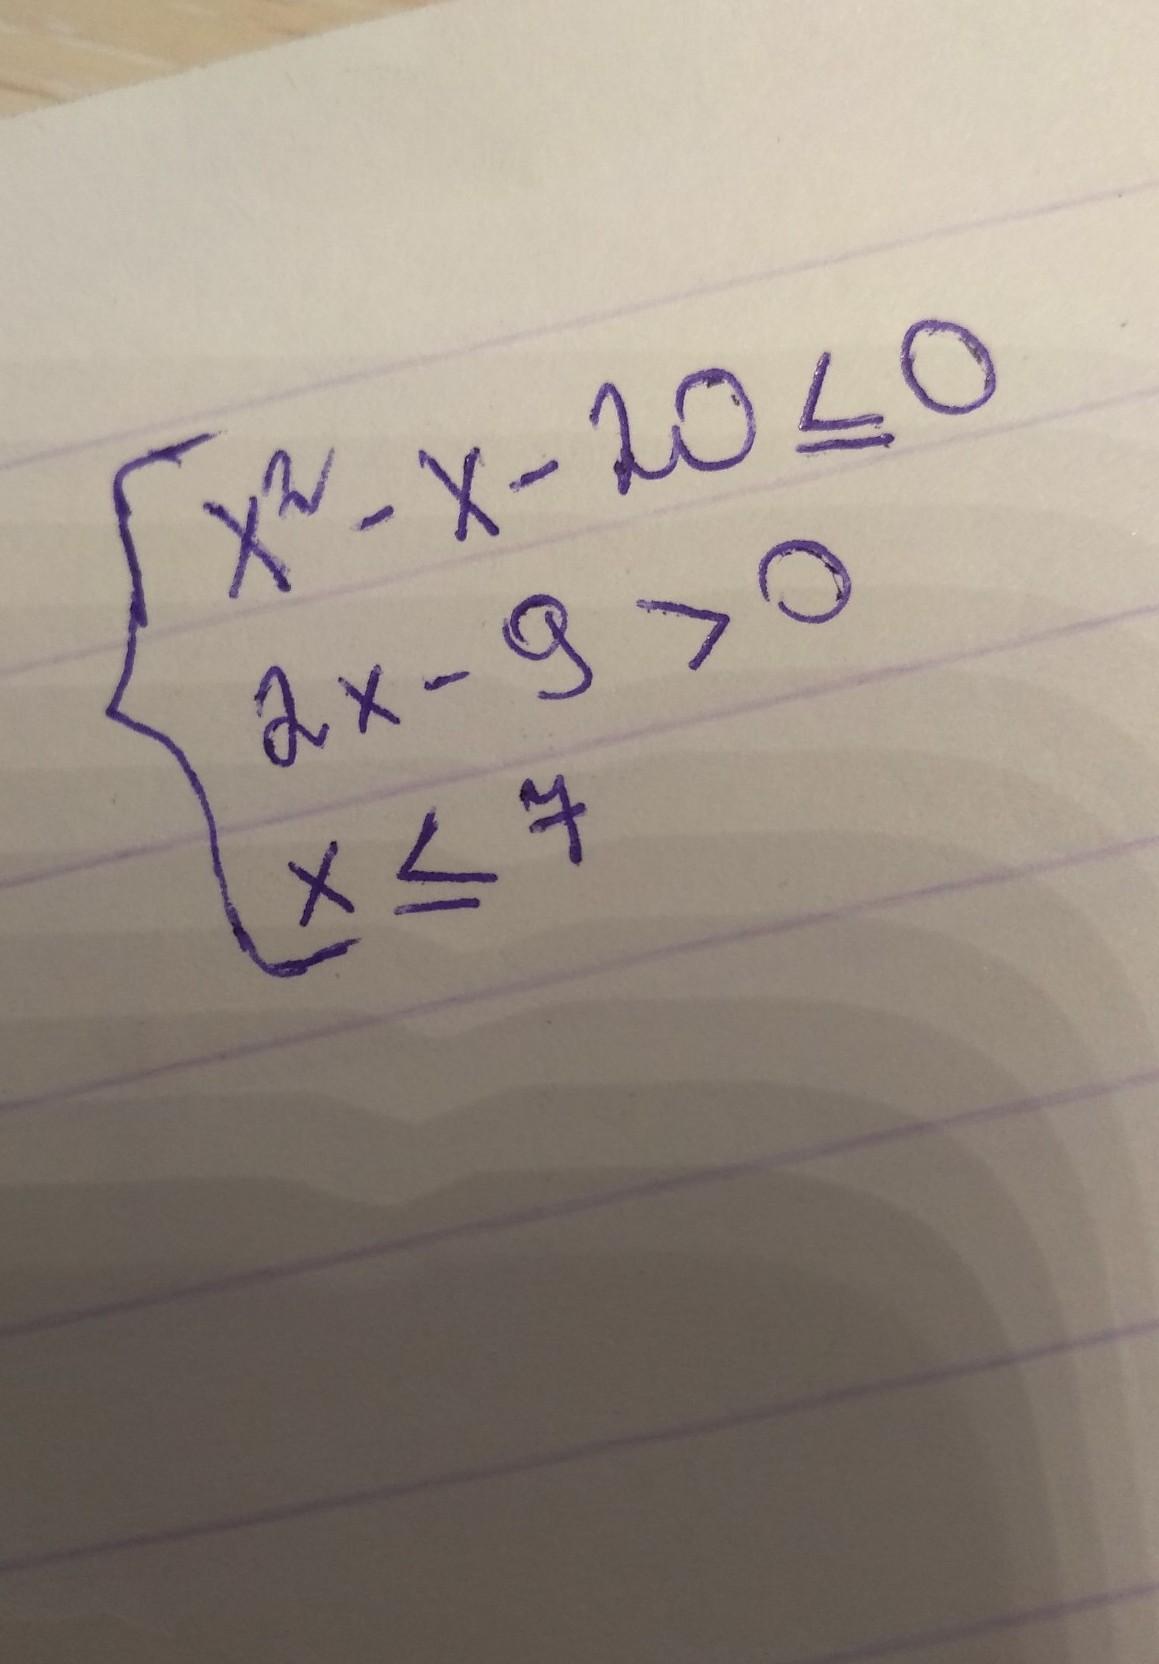 x² - x - 20 ≤ 0
2x - 9 > 0
x ≤ 7